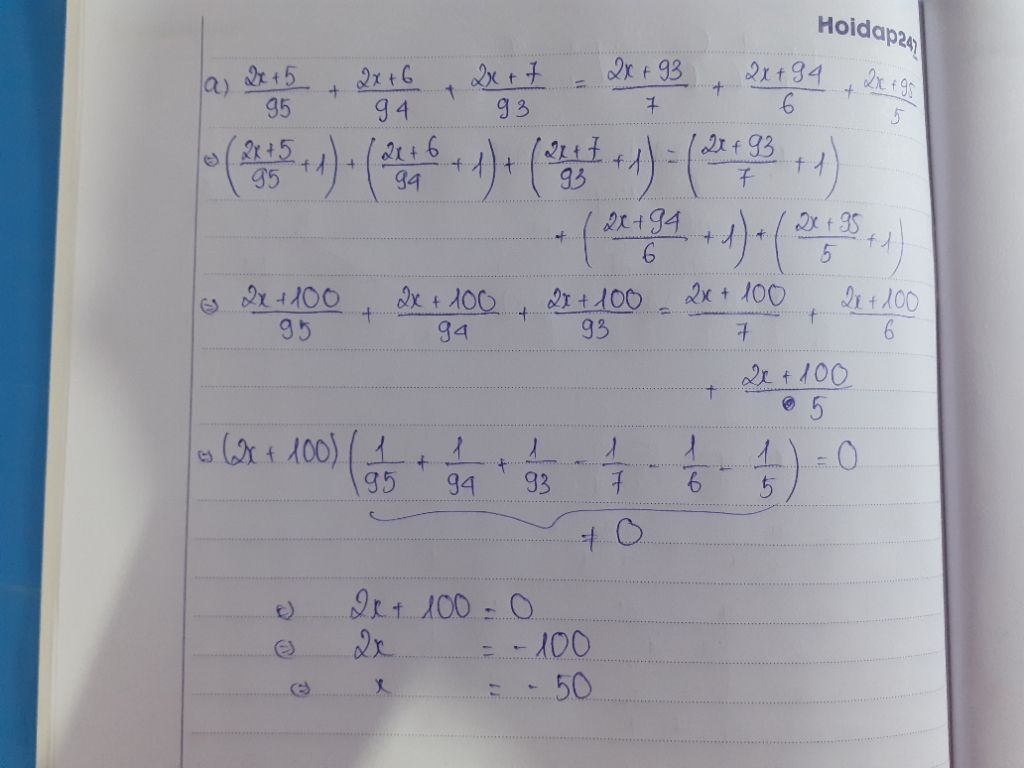 Hoidap247
a) \frac{2x+5}{95} + \frac{2x+6}{94} + \frac{2x+7}{93} = \frac{2x+93}{7} + \frac{2x+94}{6} + \frac{2x+95}{5}
⇔ (\frac{2x+5}{95} + 1) + (\frac{2x+6}{94} + 1) + (\frac{2x+7}{93} + 1) = (\frac{2x+93}{7} + 1)
+ (\frac{2x+94}{6} + 1) + (\frac{2x+95}{5} + 1)
⇔ \frac{2x+100}{95} + \frac{2x+100}{94} + \frac{2x+100}{93} = \frac{2x+100}{7} + \frac{2x+100}{6}
+ \frac{2x+100}{5}
⇔ (2x+100)(\frac{1}{95} + \frac{1}{94} + \frac{1}{93} - \frac{1}{7} - \frac{1}{6} - \frac{1}{5}) = 0
≠ 0
⇔ 2x + 100 = 0
⇔ 2x = -100
⇔ x = -50